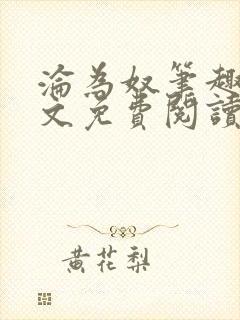 淪為奴筆趣
文免費閱讀
黃花梨